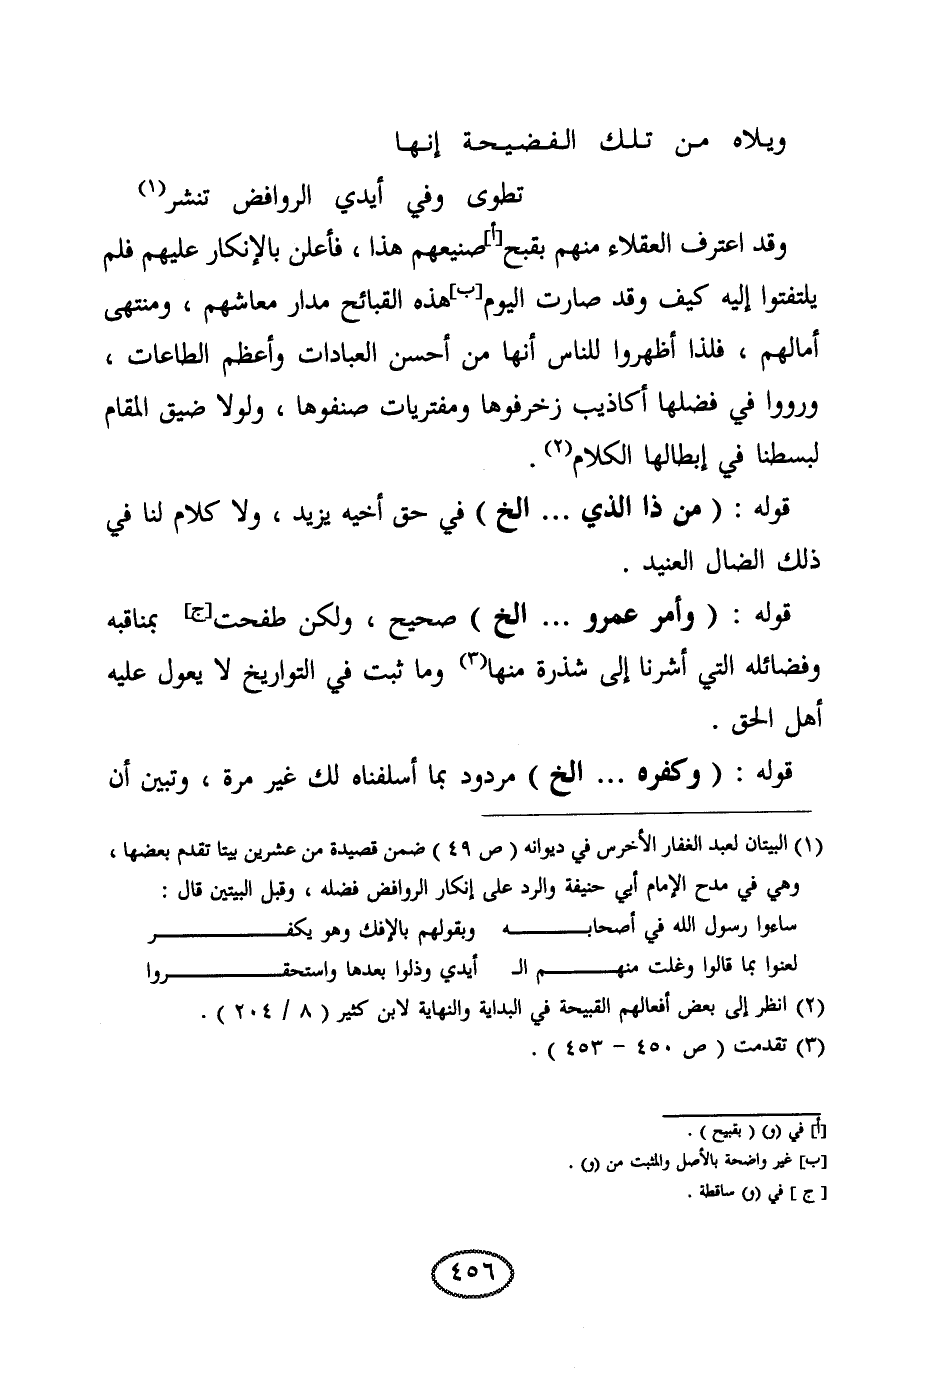 ويلاه من تلك الفضيحة إنها
تطوى وفي أيدي الروافض تنشر(١)
وقد اعترف العقلاء منهم بقبح[أ] صنيعهم هذا ، فأعلن بالإنكار عليهم فلم
يلتفتوا إليه كيف وقد صارت اليوم[ب] هذه القبائح مدار معاشهم ، ومنتهى
أمالهم ، فلذا أظهروا للناس أنها من أحسن العبادات وأعظم الطاعات ،
ورووا في فضلها أكاذيب زخرفوها ومفتريات صنفوها ، ولولا ضيق المقام
لبسطنا في إبطالها الكلام(٢) .
قوله : ( من ذا الذي ... الخ ) في حق أخيه يزيد ، ولا كلام لنا في
ذلك الضال العنيد .
قوله : ( وأمر عمرو ... الخ ) صحيح ، ولكن طفحت[ج] بمناقبه
وفضائله التي أشرنا إلى شذرة منها(٣) وما ثبت في التواريخ لا يعول عليه
أهل الحق .
قوله : ( وكفره ... الخ ) مردود بما أسلفناه لك غير مرة ، وتبين أن
(١) البيتان لعبد الغفار الأخرس في ديوانه ( ص ٤٩ ) ضمن قصيدة من عشرين بيتا تقدم بعضها ،
وهي في مدح الإمام أبي حنيفة والرد على إنكار الروافض فضله ، وقبل البيتين قال :
ساءوا رسول الله في أصحابـــــه وبقولهم بالإفك وهو يكفـــــــر
لعنوا بما قالوا وغلت منهـــــم الـ أيدي وذلوا بعدها واستحقـــــــروا
(٢) انظر إلى بعض أفعالهم القبيحة في البداية والنهاية لابن كثير ( ٨ / ٢٠٤ ) .
(٣) تقدمت ( ص ٤٥٠ – ٤٥٣ ) .
[أ] في (و) ( بقبيح ) .
[ب] غير واضحة بالأصل والمثبت من (و) .
[ ج ] في (و) ساقطة .
٤٥٦